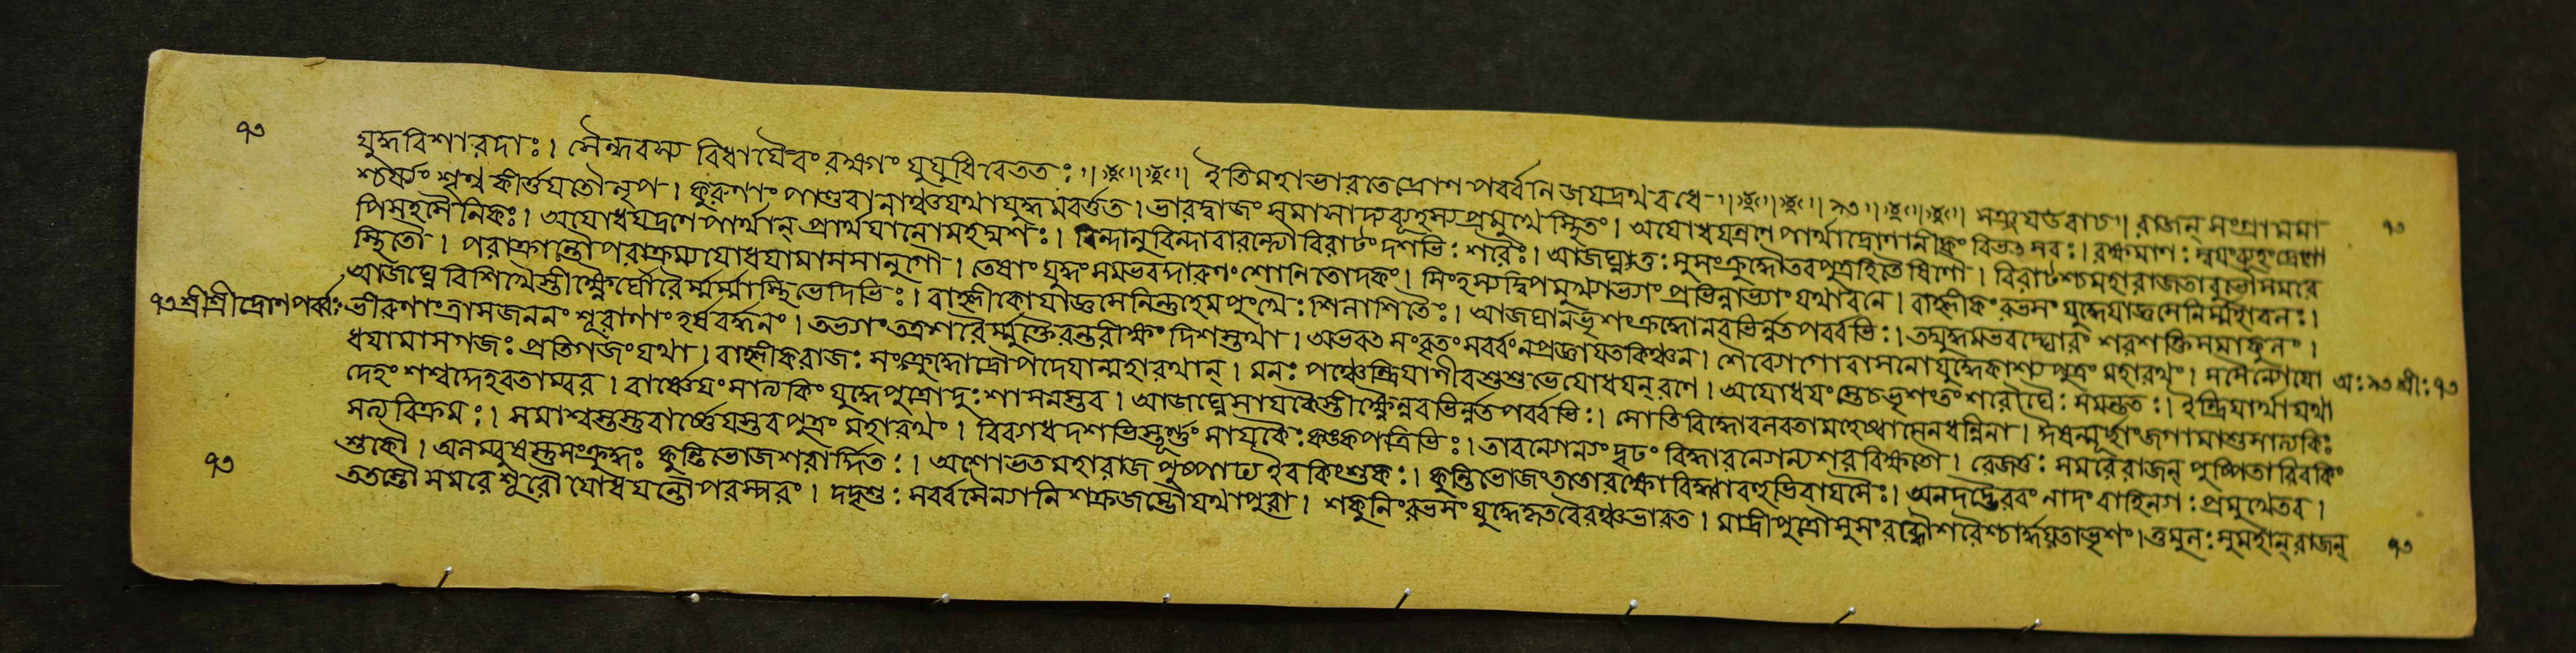 ৭৩ যুদ্ধবিশারদাঃ। সৈন্ধবস্য বিধায়ৈবং রক্ষণং যুযুধিরেততঃ।। ইতিমহাভারতেদ্রোণপর্ব্বনি জয়দ্রথবধে ৯৩ সঞ্জয়উবাচ।। রাজন্ সংগ্রামমা ৭৩
শ্চর্য্যং শৃণু কীর্ত্তয়তোনৃপ। কুরুণাং পাণ্ডবানাঞ্চযথাযুদ্ধমবর্ত্তত। ভারদ্বাজং সমাসাদ্যব্যূহস্যপ্রমুখেস্থিতং। অযোধয়ন্রণেপার্থাদ্রোণানীকং বিভিৎসবঃ। রক্ষমাণঃ স্বয়ংব্যূহংদ্রোণো
পিসহসৈনিকৈঃ। অযোধয়দ্রণেপার্থান্ প্রার্থয়ানোমহদ্যশঃ। বিন্দানুবিন্দাবাবন্ত্যৌবিরাটং দশভিঃ শরৈঃ। আজঘ্নতুঃ সুসংক্রুদ্ধৌতবপুত্রহিতৈষিণৌ। বিরাটশ্চমহারাজতাবুভৌসমরে
স্থিতৌ। পরাক্রান্তৌপরাক্রম্যযোধয়ামাসসানুগৌ। তেষাং যুদ্ধং সমভবদ্দারুণংশোনিতোদকং। সিংহস্যদ্বিপমুখ্যাভ্যাং প্রভিন্নাভ্যাং যথাবনে। বাহ্লীকং রভসং যুদ্ধেযাজ্ঞসেনির্ম্মহাবলঃ।
আজঘ্নে বিশিখৈস্তীক্ষ্ণৈর্ঘোরৈর্ম্মর্ম্মাস্থিভেদিভিঃ। বাহ্লীকোযাজ্ঞসেনিন্তুহেমপুংখৈঃ শিলাশিতৈঃ। আজঘানভৃশংক্রুদ্ধোনবভির্ন্নতপর্ব্বভিঃ। তদ্যুদ্ধমভবদ্ঘোরং শরশক্তিসমাকুলং।
৭৩শ্রীশ্রীদ্রোণপর্ব্বঃ ভীরুণাংত্রাসজননং শূরাণাং হর্ষবর্দ্ধনং। তাভ্যাং তত্রশরৈর্ম্মুক্তৈরন্তরীক্ষং দিশস্তথা। অভবৎ সংবৃতং সর্ব্বংনপ্রজ্ঞায়তকিঞ্চন। শৈব্যোগোবাসনোযুদ্ধেকাশ্যপুত্রং মহারথং। সসৈন্যোযো অঃ৯৩ শ্রীঃ৭৩
ধয়ামাসগজঃ প্রতিগজংযথা। বাহ্লীকরাজঃ সংক্রুদ্ধোদ্রৌপদেয়ান্মহারথান্। মনঃ পঞ্চেন্দ্রিয়াণীবশুশুভেযোধয়ন্রণে। অযোধয়ংস্তেচভৃশং তং শরৌঘৈঃ সমন্ততঃ। ইন্দ্রিয়ার্থাযথা
দেহং শশ্বদ্দেহবতাম্বর। বার্ষ্ণেয়ং সাত্যকিং যুদ্ধেপুত্রোদুঃশাসনস্তব। আজঘ্নেসায়কৈস্তীক্ষ্ণৈর্নবভির্ন্নতপর্ব্বভিঃ। সোতিবিদ্ধোবলবতামহেষ্বাসেনধন্বিনা। ঈষন্মূর্ছাংজগামাশুসাত্যকিঃ
সত্যবিক্রমঃ। সমাশ্বস্তস্তুবার্ষ্ণেয়স্তবপুত্রং মহারথং। বিব্যাধদশভিস্তূর্ণং সায়কৈঃ কঙ্কপত্রিভিঃ। তাবন্যোন্যং দৃঢং বিদ্ধাবন্যোন্যশরবিক্ষতৌ। রেজতুঃ সমরেরাজন্ পুষ্পিতাবিবকিং
শুকৌ। অলম্বুষস্তুসংক্রুদ্ধঃ কুন্তিভোজশরার্দ্দিতঃ। অশোভতমহারাজ পুষ্পাঢ্যইবকিংশুকঃ। কুন্তিভোজংততোরক্ষোবিদ্ধ্বাবহুভিরায়সৈঃ। অনদদ্ভৈরবং নাদং বাহিন্যাঃ প্রমুখেতব।
৭৩ ততস্তৌ সমরে শূরৌ যোধয়ন্তৌপরস্পরং। দদৃশুঃ সর্ব্বসৈন্যানি শক্রজম্ভৌযথাপুরা। শকুনিংরভসং যুদ্ধেকৃতবৈরঞ্চভারত। মাদ্রীপুত্রৌসুসংরব্ধৌশরৈশ্চার্দ্দয়তাংভৃশং। তুমুলঃ সুমহান্ রাজন্ ৭৩